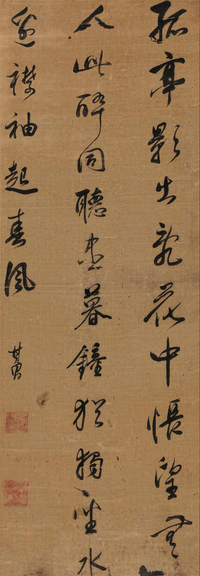 孤亭影出亂花中悵望無
人此醉同聽盡暮鐘猶獨坐水
邊襟袖起春風